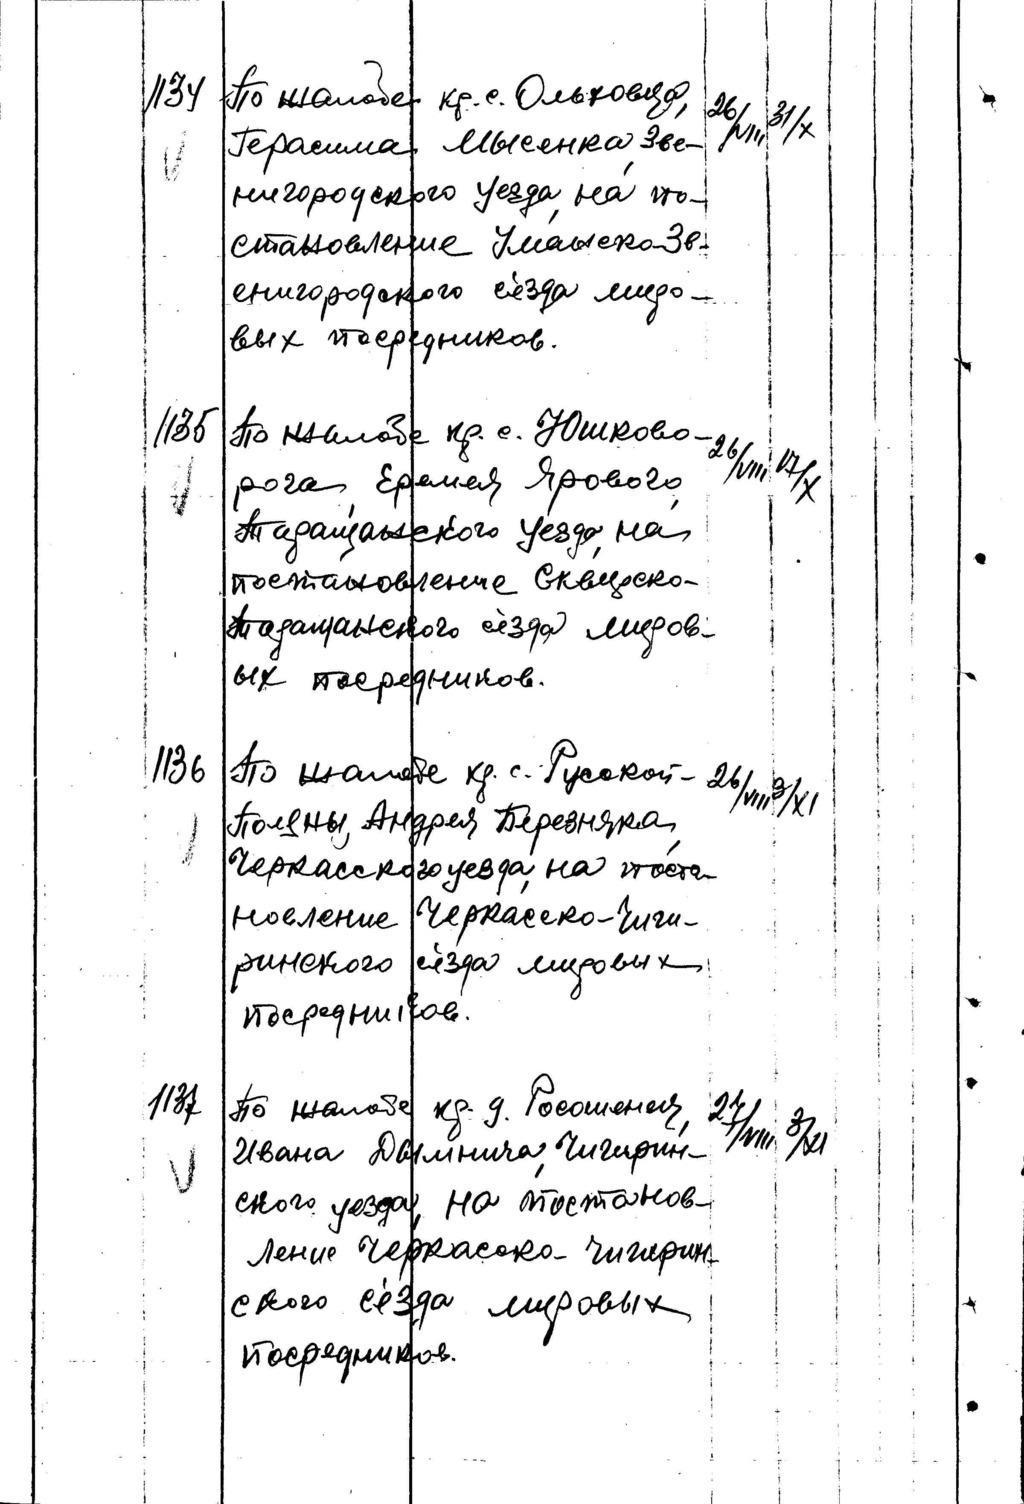 1134 По жалобе кр. с. Ольховца, 26/VIII 31/X
Герасима Мысенка, Зве-
нигородского уезда, на по-
становление Уманско-Зв-
енигородского сьезда миро-
вых посредников.
1135 По жалобе кр. с. Юшково- 26/VIII 17/X
рога, Еремея Ярового,
Таращанского уезда, на
постановление Сквирско-
Таращанского сьезда миров-
ых посредников.
1136 По жалобе кр. с. Русской- 26/VIII 3/XI
Поляны, Андрея Березняка,
Черкасского уезда, на поста-
новление Черкасско-Чиги-
ринского сьезда мировых
посредников.
1137 По жалобе кр. д. 27/VIII 3/XI
Ивана Дымнича, Чигирин-
ского уезда, на постанов-
ление Черкасско-Чигирин-
ского сьезда мировых
посредников.